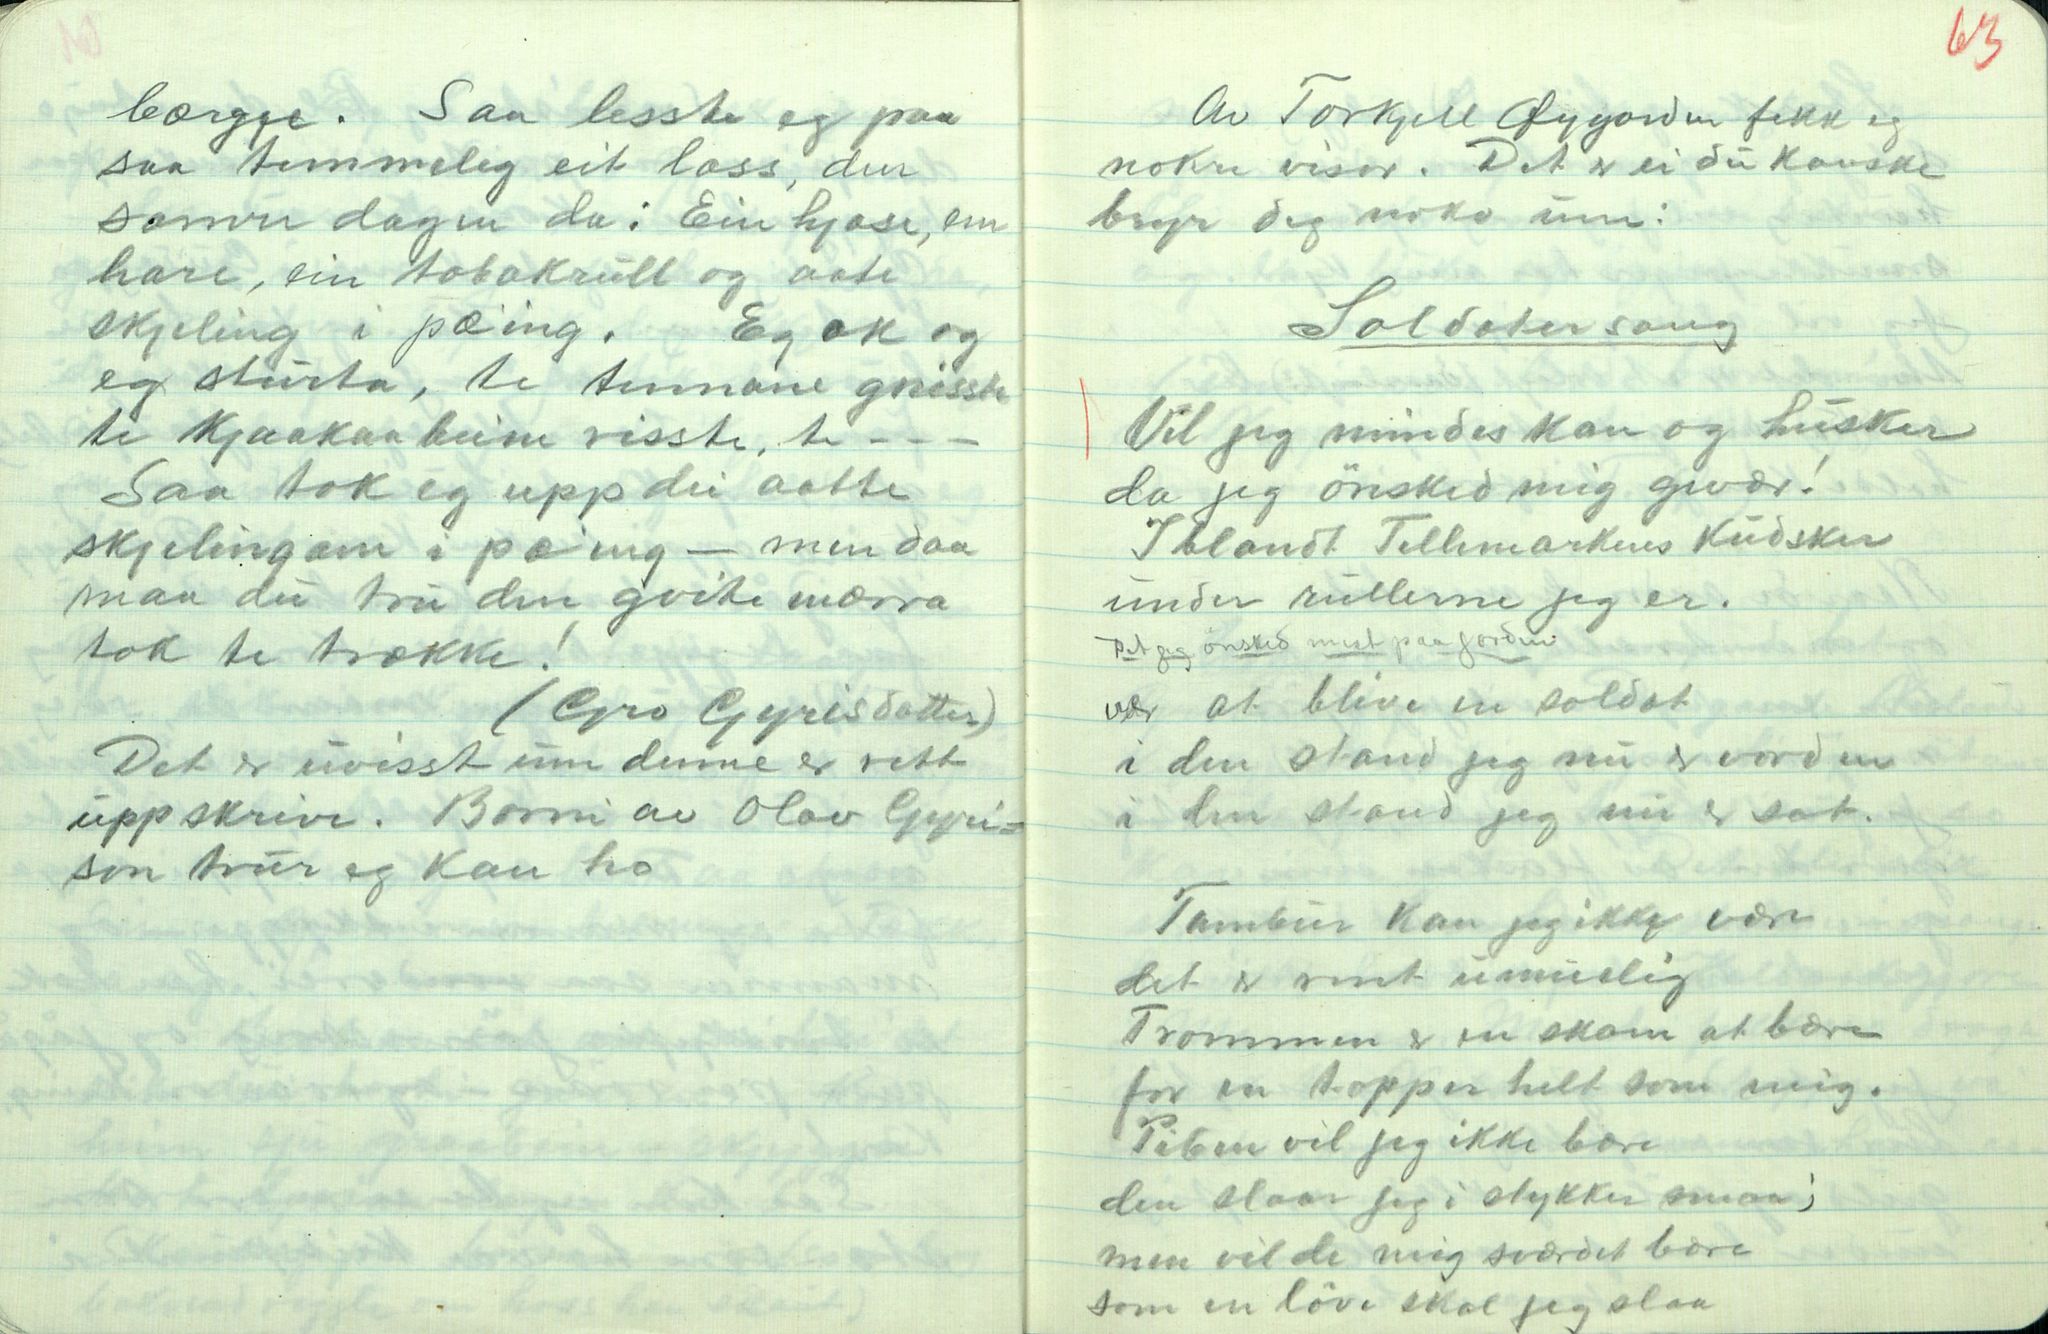 bærgje. Saa lesste eg paa
saa temmeleg eit lass, den
somre dagen da: Ein hjase, ein
hare, ein tobakrull og aate
skjeling i pæing. Eg ok og
eg sturta, te tennane gnisste
te kjaakaabeine risste, te - - -
Saa tok eg upp dei aatte
skjelingam i pæing - men daa
maa du tru den gvite mærra
tok te trække!
(Gro Gyrisdotter)
Det er uvisst um denne er rett
uppskrive. Borni av Olav Gyri-
son trur eg kan ho
63
Av Torkjell Øygarden fekk eg
nokre visor. Det er ei du kanske
bryr deg noko um:
Soldatersang
Vil jeg mindes kan og husker
da jeg önsked mig gevær!
Iblandt Tellemarkens Kudsker
under rullerne jeg er.
Det jeg önsked mest paa jorden
var at blive en soldat
i den stand jeg nu er vorden
i den stand jeg nu er sat.
Tambur kan jeg ikke være
det er rent umuelig
Trommen er en skam at bære
for en topper helt som mig.
Piben vil jeg ikke bære
den slaar jeg i stykker smaa;
men vil de mig sværdet bære
som en löve skal jeg slaa